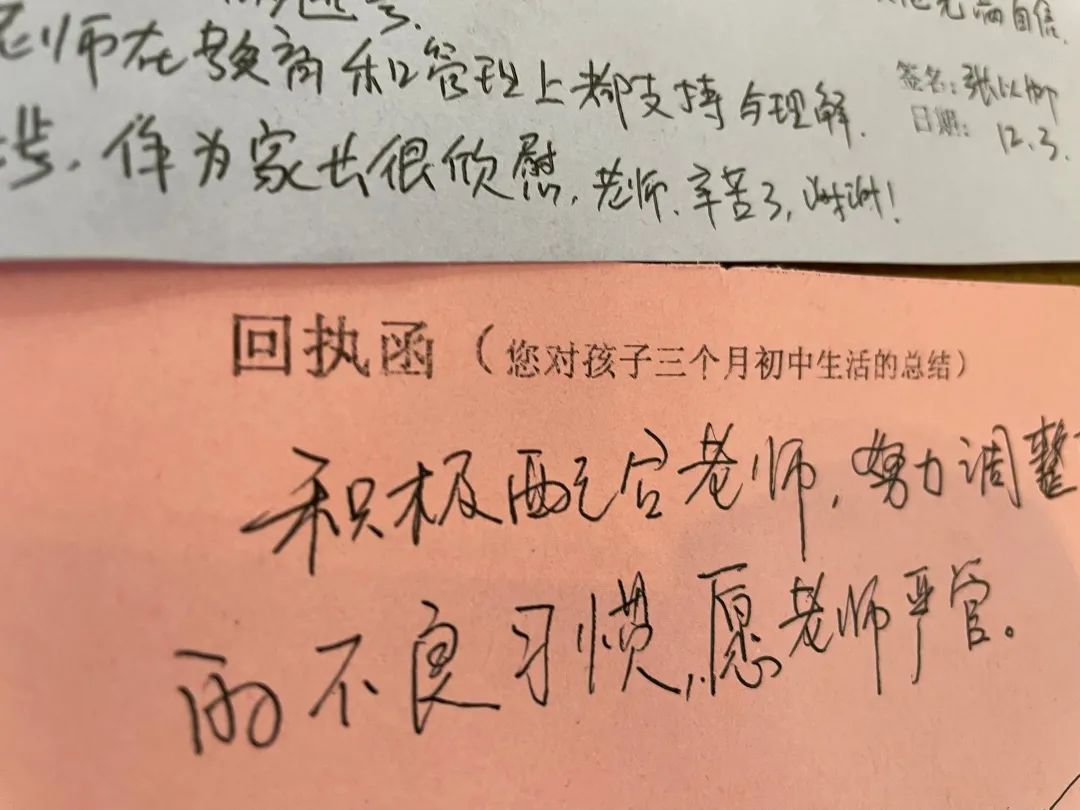 老师在教育和管理上都支持与理解.
作为家长很欣慰,老师、辛苦了,谢谢!
充满自信.
签名:张
日期: 12.3.
回执函(您对孩子三个月初中生活的总结)
积极配合老师,努力调整
不良习惯,愿老师严管。